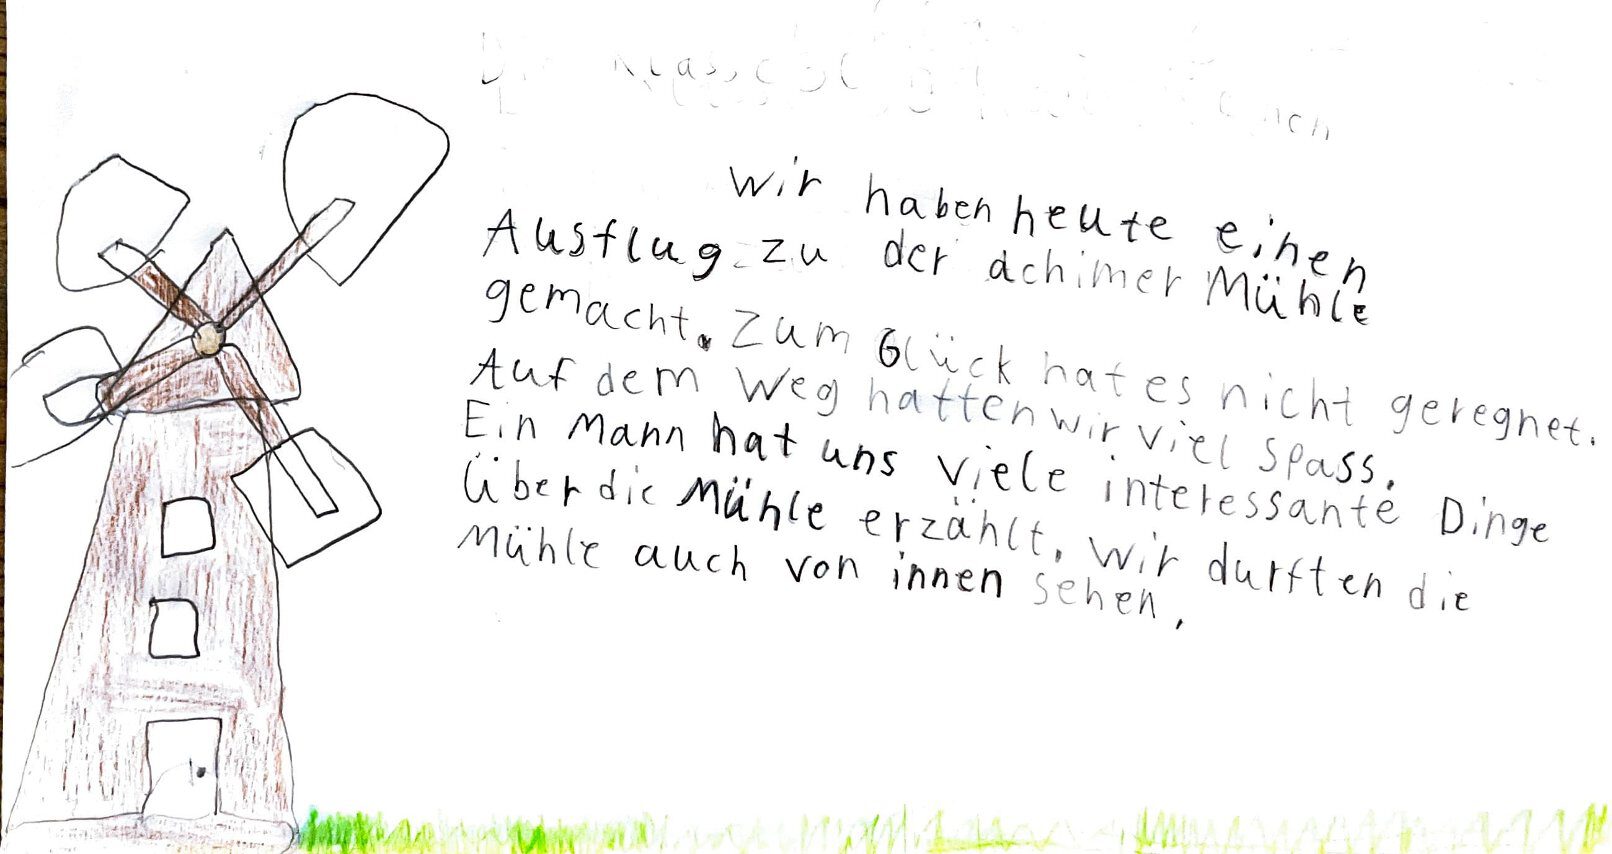 Wir haben heute einen
Ausflug zu der achimer Mühle
gemacht. Zum Glück hat es nicht geregnet.
Auf dem Weg hatten wir viel spass.
Ein Mann hat uns viele interessante Dinge
über die Mühle erzählt. Wir durften die
Mühle auch von innen sehen.